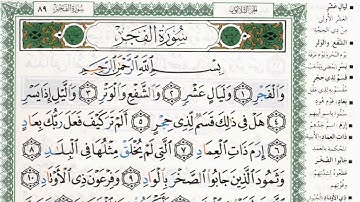 سُورَةُ الفَجْرِ ٨٩
الجُزْءُ الثَّلَاثُونَ
سُورَةُ الفَجْرِ
بِسْمِ اللَّهِ الرَّحْمَٰنِ الرَّحِيمِ
وَالْفَجْرِ ١ وَلَيَالٍ عَشْرٍ ٢ وَالشَّفْعِ وَالْوَتْرِ ٣ وَاللَّيْلِ إِذَا يَسْرِ
٤ هَلْ فِي ذَٰلِكَ قَسَمٌ لِّذِي حِجْرٍ ٥ أَلَمْ تَرَ كَيْفَ فَعَلَ رَبُّكَ بِعَادٍ
٦ إِرَمَ ذَاتِ الْعِمَادِ ٧ الَّتِي لَمْ يُخْلَقْ مِثْلُهَا فِي الْبِلَادِ ٨
وَثَمُودَ الَّذِينَ جَابُوا الصَّخْرَ بِالْوَادِ ٩ وَفِرْعَوْنَ ذِي الْأَوْتَادِ ١٠
لَيَالٍ عَشْرٍ
العشر الأولى
من ذي الحجة
الشَّفْعِ وَالْوَتْرِ
يوم النحر ويوم عرفة
قَسَمٌ لِّذِي حِجْرٍ
بِعَادٍ
ذَاتِ الْعِمَادِ
جَابُوا الصَّخْرَ
قطعوه